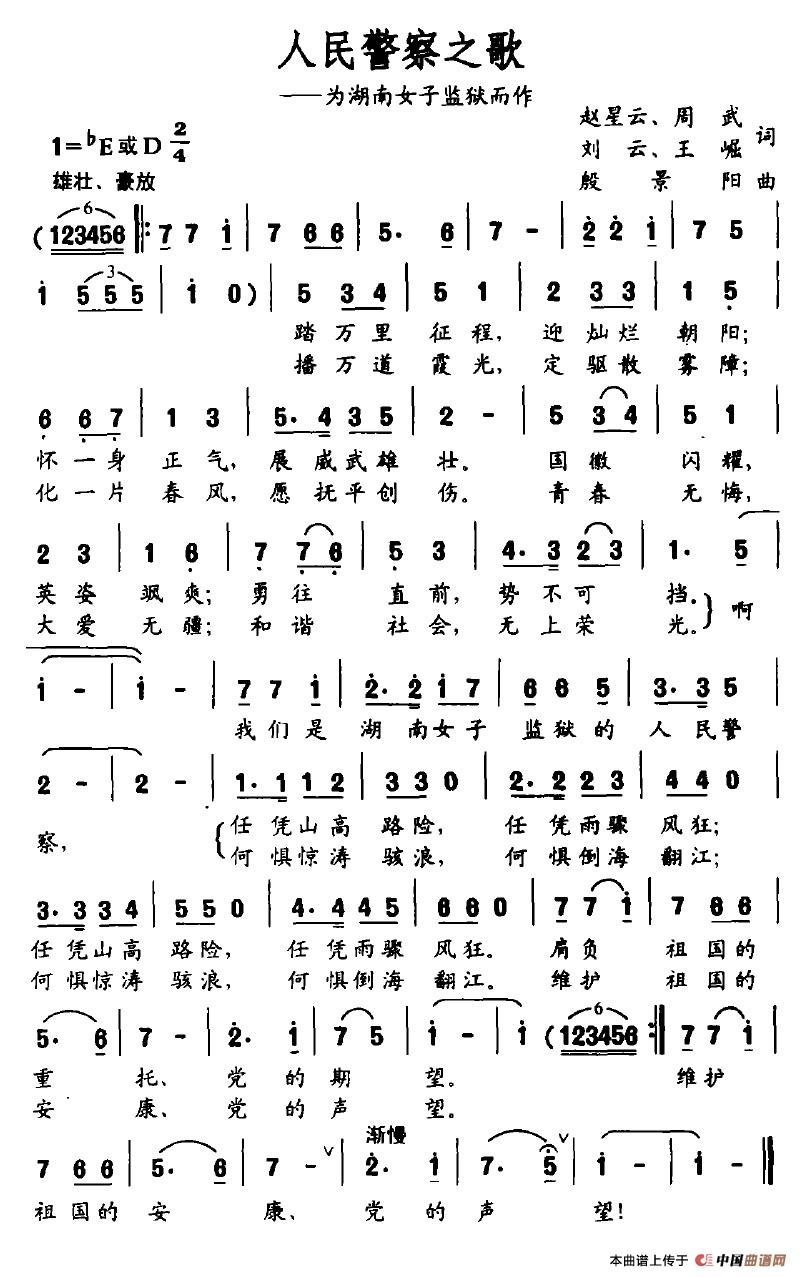 人民警察之歌
——为湖南女子监狱而作
赵星云、周 武
刘 云、王 崛 词
殷 景 阳 曲
1=♭E或D 2/4
雄壮、豪放
6
(123456 ‖: 7 7 i | 7 6 6 | 5· 6 | 7 - | 2 2 i | 7 5
3
i 5 5 5 | i 0 ) | 5 3 4 | 5 1 | 2 3 3 | 1 5
踏 万 里 征 程， 迎 灿 烂 朝 阳；
播 万 道 霞 光， 定 驱 散 雾 障；
6 6 7 | 1 3 | 5· 4 3 5 | 2 - | 5 3 4 | 5 1
怀 一 身 正 气， 展 威 武 雄 壮。 国 徽 闪 耀，
化 一 片 春 风， 愿 抚 平 创 伤。 青 春 无 悔，
2 3 | 1 6 | 7 7 6 | 5 3 | 4· 3 2 3 | 1· 5
英 姿 飒 爽； 勇 往 直 前， 势 不 可 挡。 啊
大 爱 无 疆； 和 谐 社 会， 无 上 荣 光。
i - | i - | 7 7 i | 2· 2 i 7 | 6 6 5 | 3· 3 5
我 们 是 湖 南 女 子 监 狱 的 人 民 警
2 - | 2 - | 1· 1 1 2 | 3 3 0 | 2· 2 2 3 | 4 4 0
察， 任 凭 山 高 路 险， 任 凭 雨 骤 风 狂；
何 惧 惊 涛 骇 浪， 何 惧 倒 海 翻 江；
3· 3 3 4 | 5 5 0 | 4· 4 4 5 | 6 6 0 | 7 7 i | 7 6 6
任 凭 山 高 路 险， 任 凭 雨 骤 风 狂。 肩 负 祖 国 的
何 惧 惊 涛 骇 浪， 何 惧 倒 海 翻 江。 维 护 祖 国 的
6
5· 6 | 7 - | 2· i | 7 5 | i - | i (123456 :‖ 7 7 i
重 托、 党 的 期 望。 维 护
安 康、 党 的 声 望。
渐慢
7 6 6 | 5· 6 | 7 - ∨ | 2· i | 7· 5 ∨ | i - | i - ‖
祖 国 的 安 康、 党 的 声 望！
本曲谱上传于 中国曲谱网